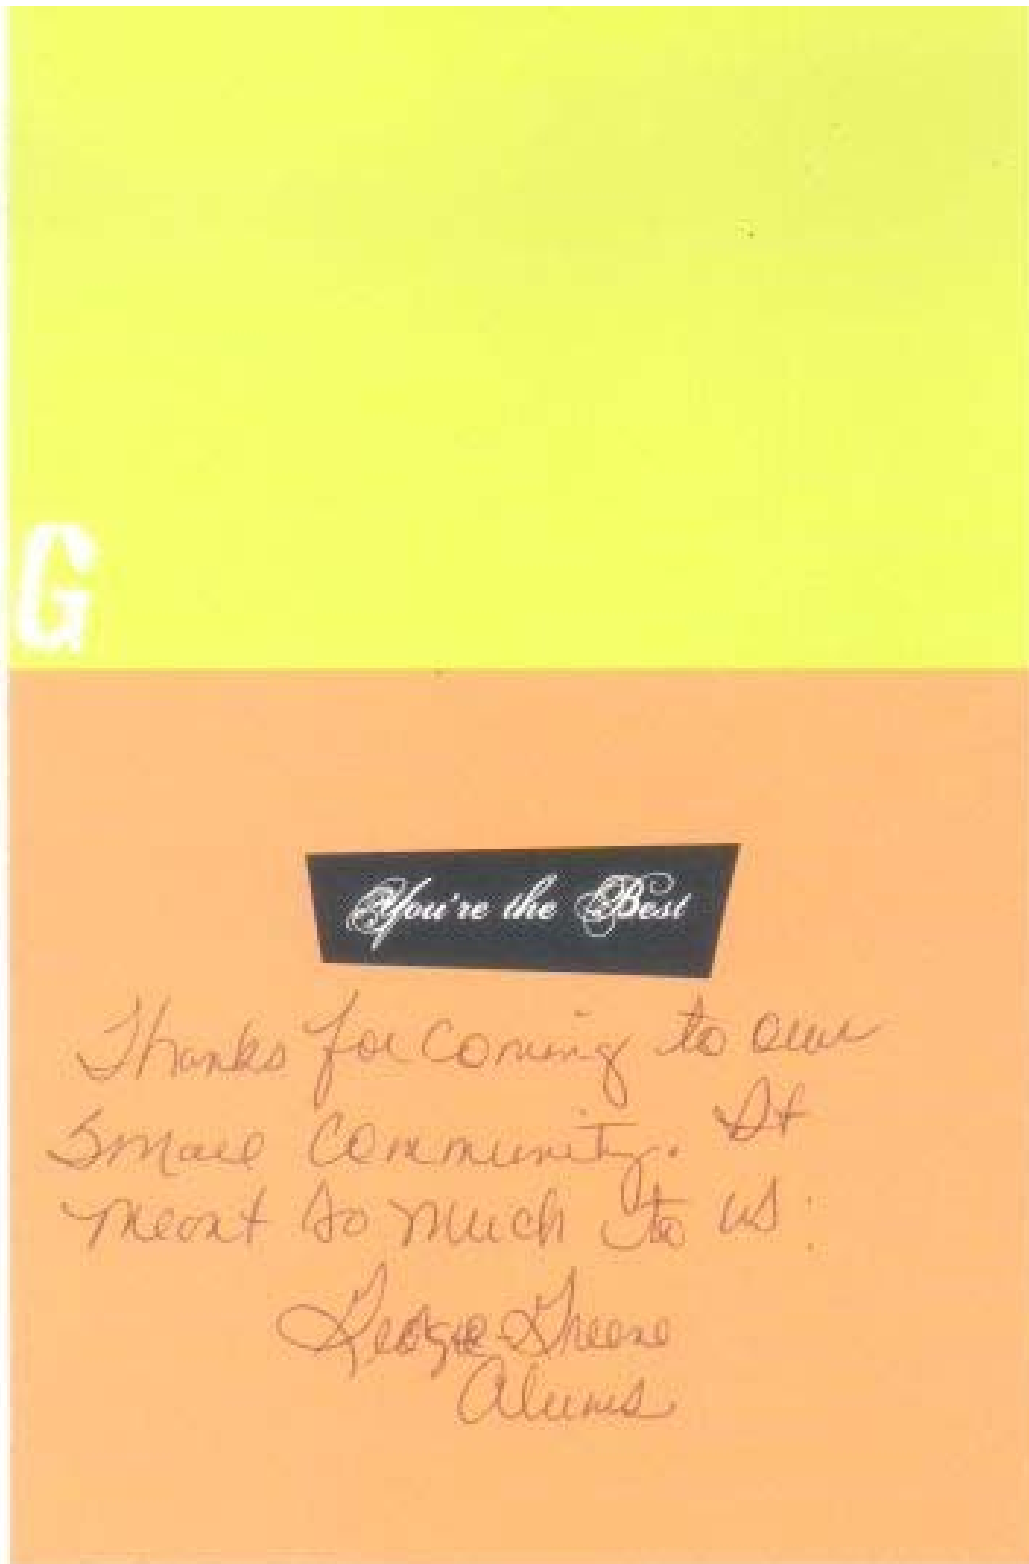 G
You're the Best
Thanks for coming to our
small community. It
meant so much to us.
Greene
Alums